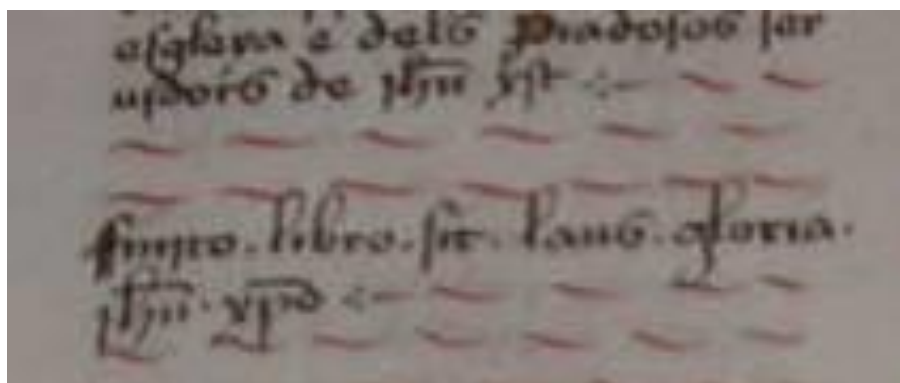 esglesia e dels piadosos ser
uidors de jhũ xp̄t
ffinito . libro . sit . laus . gloria .
jhũ . xp̄o